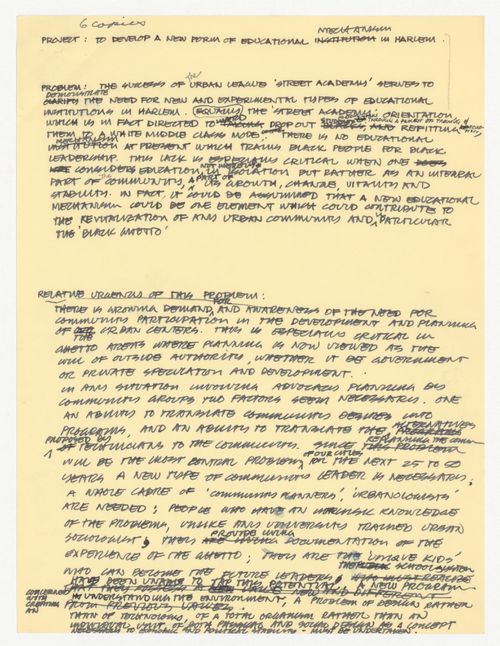 6 copies
MECHANISM
PROJECT: TO DEVELOP A NEW FORM OF EDUCATIONAL INSTITUTION IN HARLEM.
THE
PROBLEM: THE SUCCESS OF URBAN LEAGUE 'STREET ACADEMYS' SERVES TO
DEMONSTRATE
CLARIFY THE NEED FOR NEW AND EXPERIMENTAL TYPES OF EDUCATIONAL
INSTITUTIONS IN HARLEM. EQUALLY THE 'STREET ACADEMIC' ORIENTATION
WHICH IS IN FACT DIRECTED TO DROPOUT AND REFITTING
THEM TO A WHITE MIDDLE CLASS MODE THERE IS NO EDUCATIONAL
MECHANISM
INSTITUTION AT PRESENT WHICH TRAINS BLACK PEOPLE FOR BLACK
LEADERSHIP. THIS LACK IS ESPECIALLY CRITICAL WHEN ONE DOES
CONSIDERS EDUCATION, NOT MERELY IN ISOLATION BUT RATHER AS AN INTEGRAL
PART OF COMMUNITY, A PART OF ITS GROWTH, CHANGE, VITALITY AND
STABILITY. IN FACT, IT COULD BE ASSUMED THAT A NEW EDUCATIONAL
MECHANISM COULD BE ONE ELEMENT WHICH COULD CONTRIBUTE TO
THE REVITALIZATION OF ANY URBAN COMMUNITY AND, PARTICULAR
THE 'BLACK GHETTO'
RELATIVE URGENCY OF THIS PROBLEM:
THERE IS GROWING DEMAND FOR, AND AWARENESS OF THE NEED FOR
COMMUNITY PARTICIPATION IN THE DEVELOPMENT AND PLANNING
OF URBAN CENTERS. THIS IS ESPECIALLY CRITICAL IN
THE
GHETTO AREAS WHERE PLANNING IS NOW VIEWED AS THE
WILL OF OUTSIDE AUTHORITY, WHETHER IT BE GOVERNMENT
OR PRIVATE SPECULATION AND DEVELOPMENT.
IN ANY SITUATION INVOLVING ADVOCACY PLANNING BY
COMMUNITY GROUPS TWO FACTORS SEEM NECESSARY. ONE
AN ABILITY TO TRANSLATE COMMUNITY DESIRES INTO
PROGRAMS, AND AN ABILITY TO TRANSLATE THE ALTERNATIVES
PROPOSED BY TECHNICIANS TO THE COMMUNITY. SINCE THIS PROBLEM
WILL BE THE MOST CENTRAL PROBLEM OF OUR CITIES FOR THE NEXT 25 TO 50
YEARS A NEW TYPE OF COMMUNITY LEADER IS NECESSARY;
A WHOLE CADRE OF 'COMMUNITY PLANNERS', 'URBANOLOGISTS'
ARE NEEDED; PEOPLE WHO HAVE AN INTRINSIC KNOWLEDGE
OF THE PROBLEMS, UNLIKE ANY UNIVERSITY TRAINED URBAN
SOCIOLOGIST, THEY PROVIDE LIVING DOCUMENTATION OF THE
EXPERIENCE OF THE GHETTO; THEY ARE THE UNIQUE KIDS
WHO CAN BECOME THE FUTURE LEADERS, THE SCHOOL SYSTEM
HAVE BEEN UNABLE TO TAP THIS POTENTIAL. A NEW PROGRAM
CONCERNED WITH UNDERSTANDING THE ENVIRONMENT, A PROBLEM OF DESIGN RATHER
CREATION AN
FROM PREVIOUS VALUES
THAN OF TECHNOLOGY, OF A TOTAL ORGANISM RATHER THAN AN
INDIVIDUAL UNIT, OF BOTH PHYSICAL AND SOCIAL DESIGN AS A CONCEPT
NECESSARY TO ECONOMIC AND POLITICAL STABILITY - MUST BE UNDERTAKEN.